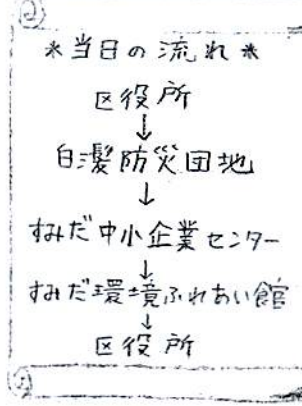 *当日の流れ*
区役所
↓
白髪防災団地
↓
すみだ中小企業センター
↓
すみだ環境ふれあい館
↓
区役所